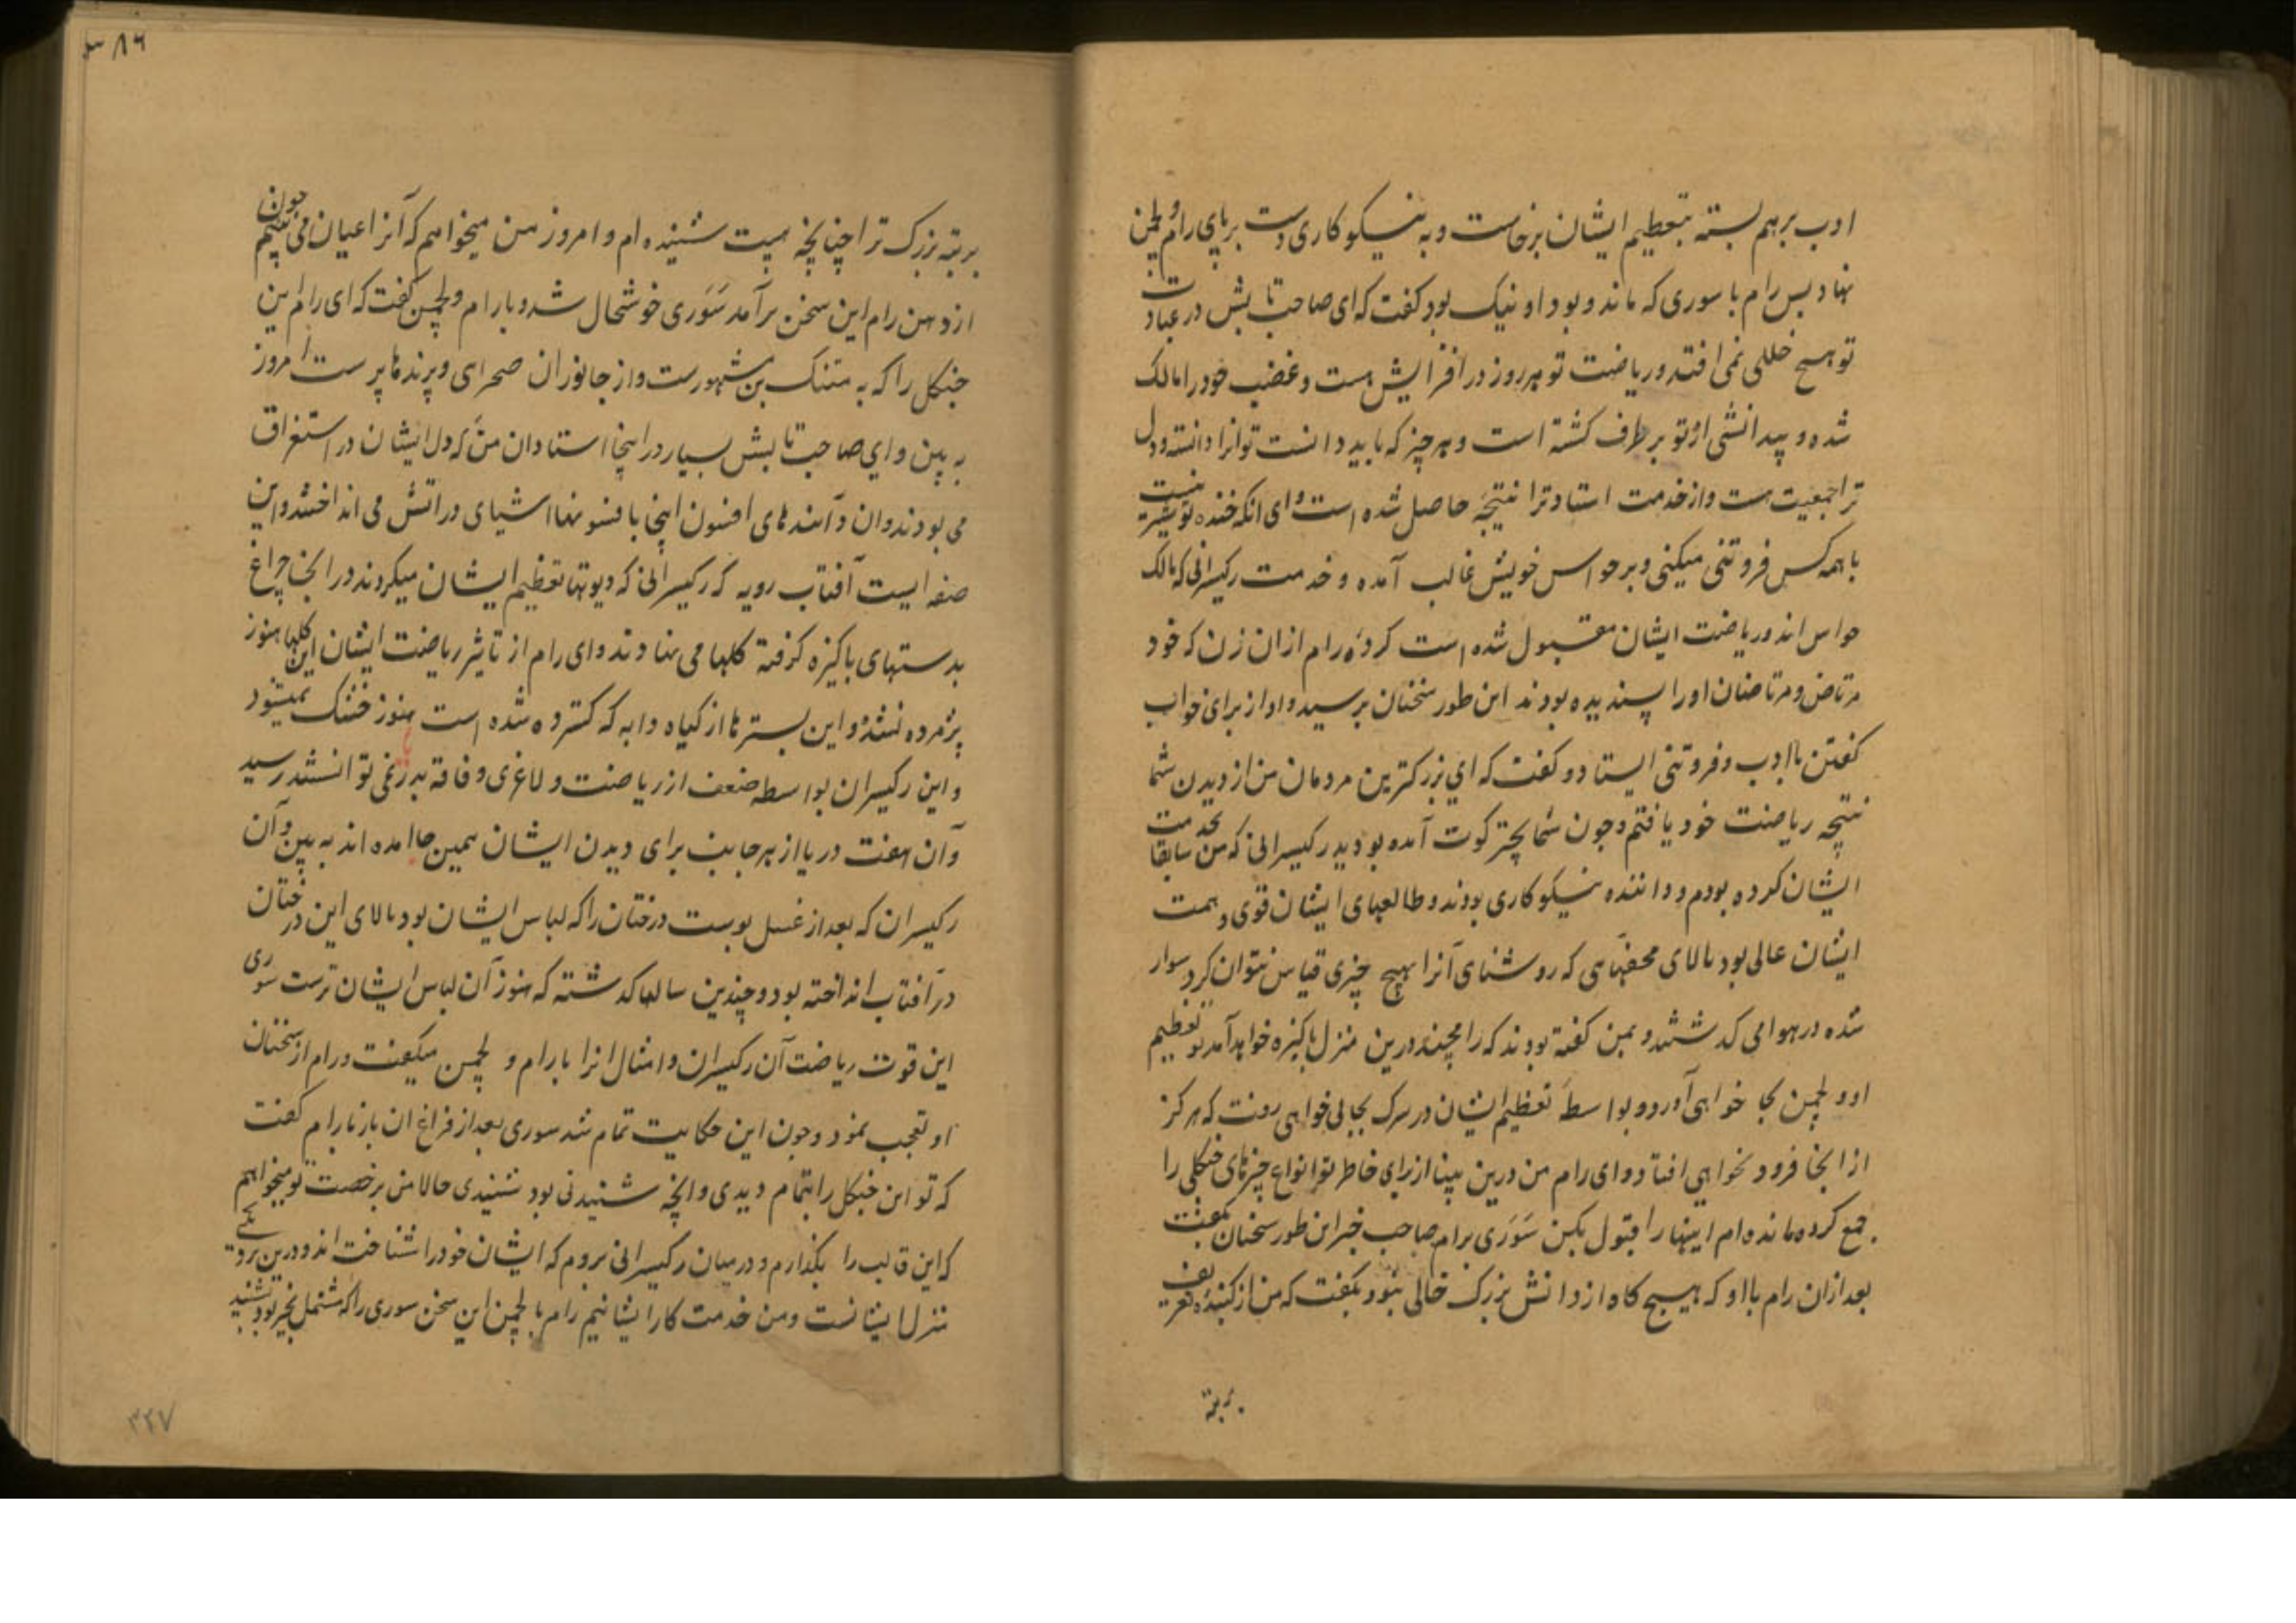 ادب برهم بسته بتعظیم ایشان برخاست و به نیکو کاری دست بر پای رام و لچمن
نهاد پس رام با سوری که مانده بود و او نیک بود گفت که ای صاحب تابش در عبادت
تو هیچ خللی نمی افتد و ریاضت تو هر روز در افزایش هست و غضب خود را مالک
شده و بیدانشی از تو بر طرف گشته است و هر چیز که باید دانست تو آنرا دانسته و دل
ترا جمعیت هست و از خدمت استاد ترا نتیجه حاصل شده است و ای آنکه خنده تو نیست
با همه کس فروتنی میکنی و بر حواس خویش غالب آمده و خدمت رکیسرانی که مالک
حواس اند و ریاضت ایشان مقبول شده است کردهٔ رام از آن زن که خود
مرتاض و مرتاضان او را پسندیده بودند این طور سخنان پرسید و او از برای خواب
گفتن با ادب و فروتنی ایستاد و گفت که ای بزرگترین مردمان من از دیدن شما
نتیجه ریاضت خود یافتم و چون شما بچترکوت آمده بودید رکیسرانی که من سابقا خدمت
ایشان کرده بودم و داننده نیکو کاری بودند و طالعهای ایشان قوی و همت
ایشان عالی بود بالای محفهایی که روشنای آنرا بهیچ چیزی قیاس نتوان کرد سوار
شده در هوا می گذشتند و بمن گفته بودند که رامچند درین منزل پاکیزه خواهد آمد تو تعظیم
او و لچمن بجا خواهی آورد و بواسطهٔ تعظیم ایشان در سرک بجائی خواهی رفت که هرگز
از آنجا فرود نخواهی افتاد و ای رام من درین بنپا از برای خاطر تو انواع چیزهای جنگلی را
جمع کرده مانده ام اینها را قبول بکن سوری برام صاحب خبر این طور سخنان بگفت
بعد ازان رام با او که هیچ گاه از دانش بزرگ خالی نبود بگفت که من از کبنده تعریف
بر تبه
۸۶
بر تبه بزرگ ترا چنانچه هست شنیده ام و امروز من میخواهم که آنرا عیان می بینم چون
از دهن رام این سخن برآمد سوری خوشحال شد و با رام و لچمن گفت که ای رام این
جنگل را که به متنک بن مشهورست و از جانوران صحرای و پرندها پر ست امروز
به بین و ای صاحب تابش بسیار در اینجا استادان من که دل ایشان در استغراق
می بودند و آن دانندهای افسون اینجا بافسونها اشیای در آتش می انداختند و این
صفه ایست آفتاب رویه که رکیسرانی که دیوتها تعظیم ایشان میکردند در آنجا چراغ
بدستهای پاکیزه گرفته گلها می نهادند و ای رام از تاثیر ریاضت ایشان این گلها هنوز
پژمرده نشده و این بسترها از گیاه دابه که گسترده شده است هنوز خشک نمیشود
و این رکیسران بواسطه ضعف از ریاضت و لاغری و فاقه بدریا نمی توانستند رسید
و آن هفت دریا از هر جانب برای دیدن ایشان همین جا آمده اند به بین و آن
رکیسران که بعد از غسل پوست درختان را که لباس ایشان بود بالای این درختان
در آفتاب انداخته بود و چندین سالها گذشته که هنوز آن لباس ایشان ترست سوری
این قوت ریاضت آن رکیسران و امثال آنرا با رام و لچمن میگفت و رام از سخنان
او تعجب نمود و چون این حکایت تمام شد سوری بعد از فراغ آن باز با رام گفت
که تو این جنگل را بتمام دیدی و آنچه شنیدنی بود شنیدی حالا من برخصت تو میخواهم
که این قالب را بگذارم و در میان رکیسرانی بروم که ایشان خود را شناخت اند و درین
منزل ایشانست و من خدمت کار ایشانیم رام با لچمن این سخن سوری را که مشتمل بخیر بود شنید
۳۴۷